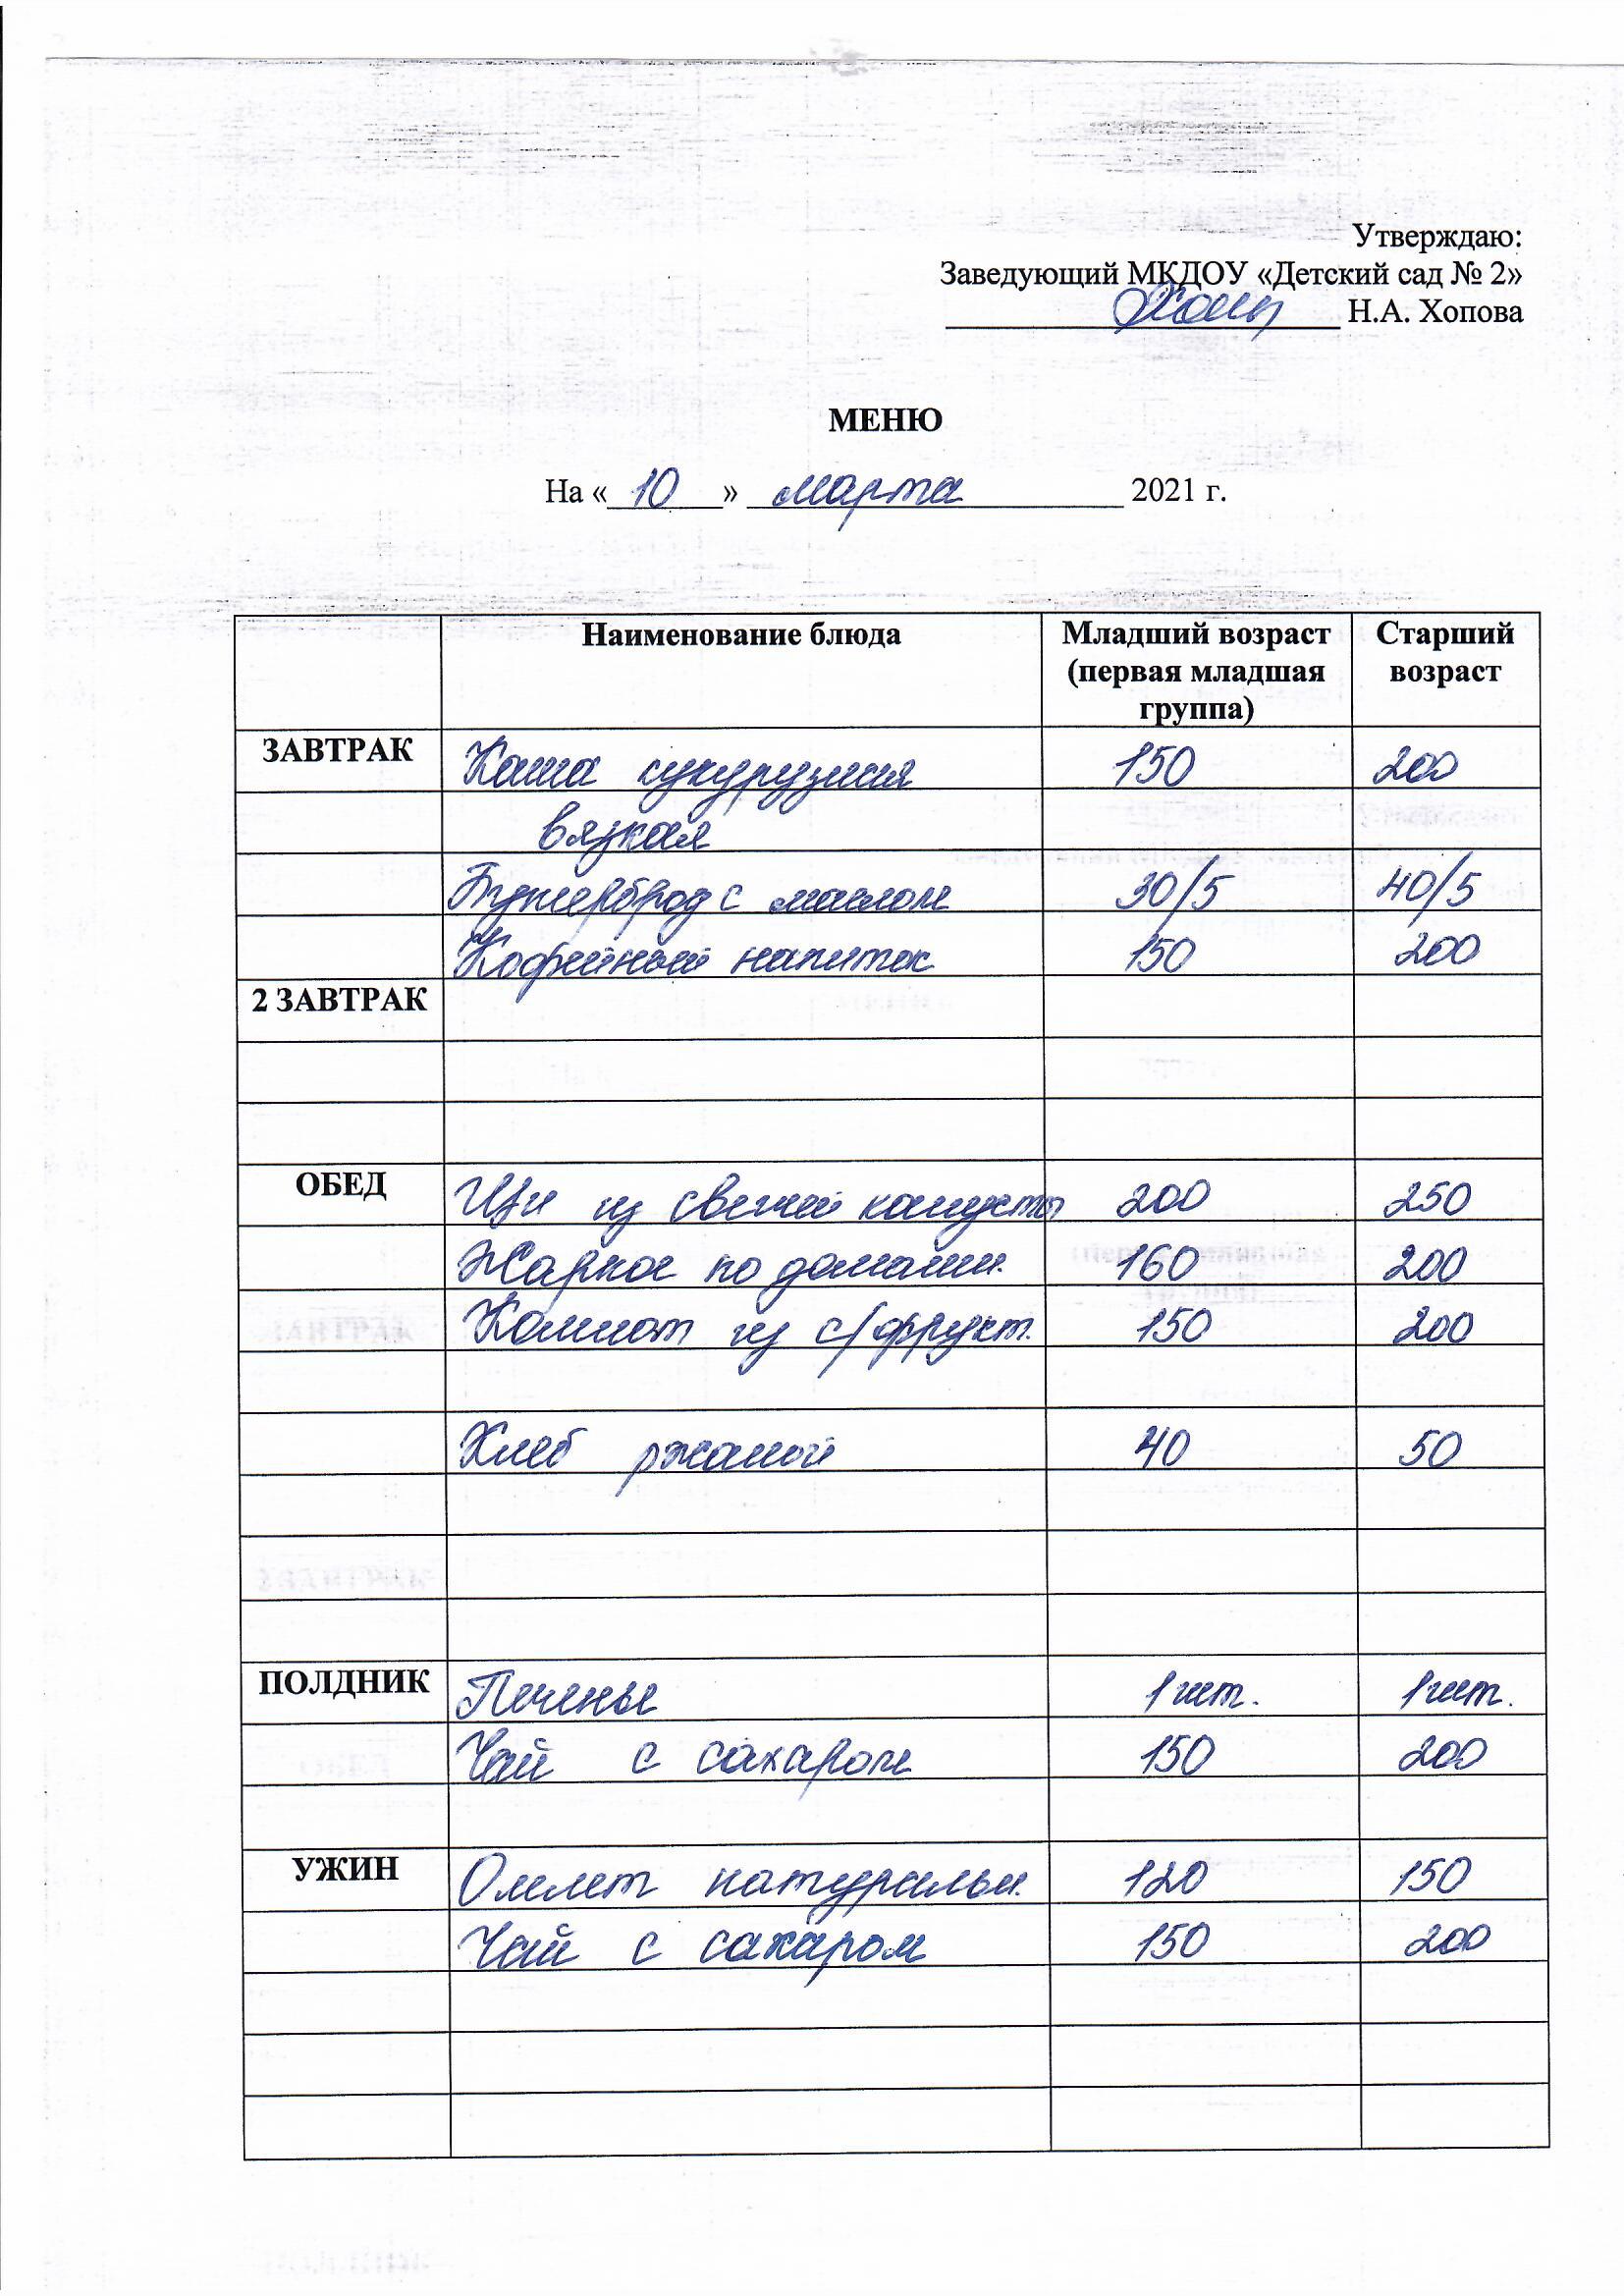 Утверждаю:
Заведующий МКДОУ «Детский сад № 2»
Н.А. Хопова
МЕНЮ
На «10» марта 2021 г.
Наименование блюда Младший возраст (первая младшая группа) Старший возраст
ЗАВТРАК Каша кукурузная 150 200
вязкая
Бутерброд с маслом 30/5 40/5
Кофейный напиток 150 200
2 ЗАВТРАК
ОБЕД Щи из свежей капусты 200 250
Жаркое по домашн. 160 200
Компот из с/фрукт. 150 200
Хлеб ржаной 40 50
ПОЛДНИК Печенье 1 шт. 1 шт.
Чай с сахаром 150 200
УЖИН Омлет натуральн. 120 150
Чай с сахаром 150 200